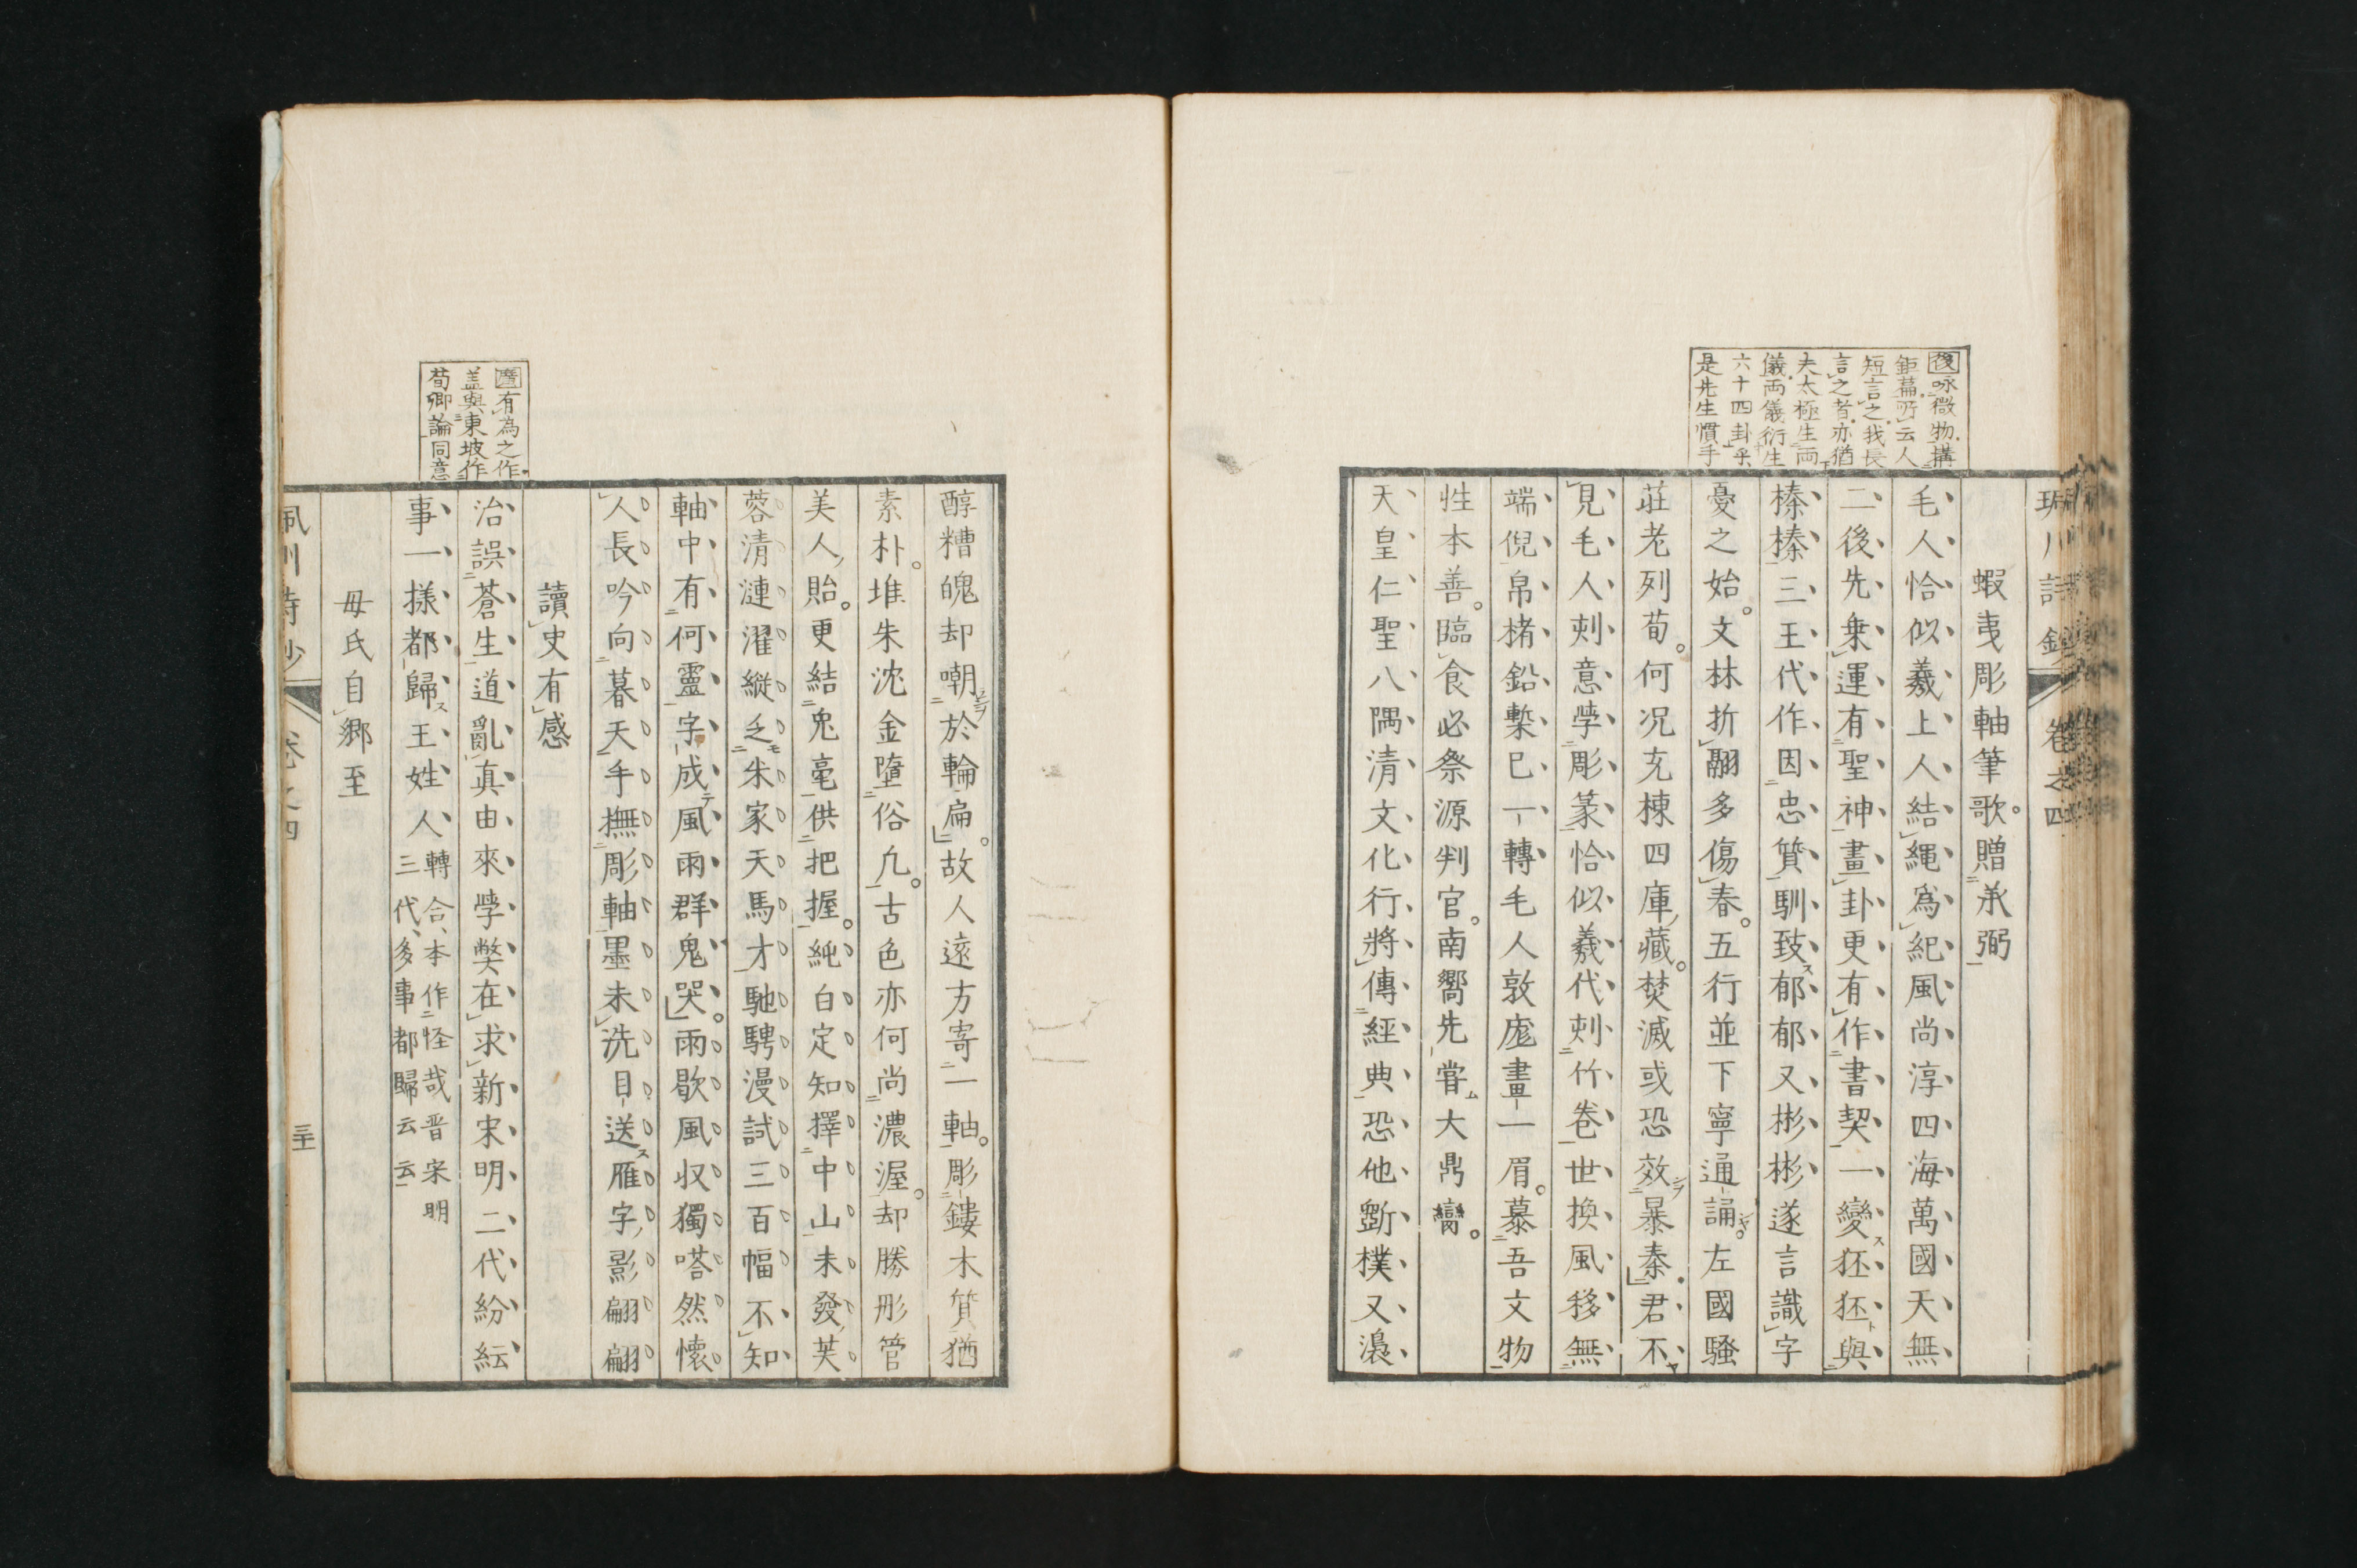 後咏微物搆
鉅篇所云人
短言之我長
言之者亦猶
夫太極生兩
儀兩儀衍生
六十四卦乎
是先生慣手
卷之四
蝦夷彫軸筆歌贈承弼
毛人恰似羲上人結繩爲紀風尚淳四海萬國天無
二後先乗運有聖神畫卦更有作書契一變狉狉與
榛榛三王代作因忠質馴致郁郁又彬彬遂言識字
憂之始文林折翮多傷春五行並下寧通誦左國騷
莊老列荀何况充棟四庫藏焚滅或恐效暴秦君不
見毛人刻意學彫篆恰似羲代刻竹卷世換風移無
端倪帛楮鉛槧巳一轉毛人敦庬畫一眉慕吾文物
性本善臨食必祭源判官南嚮先嘗大鼎臠
天皇仁聖八隅清文化行將傳經典恐他斲樸又澆
醇糟魄却嘲於輪扁故人遠方寄一軸彫鏤木質猶
素朴堆朱沈金墮俗凢古色亦何尚濃渥却勝彤管
美人貽更結兎毫供把握純白定知擇中山未發芙
蓉清漣濯縱乏朱家天馬才馳騁漫試三百幅不知
軸中有何靈字成風雨群鬼哭雨歇風収獨嗒然懷
人長吟向暮天手撫彫軸墨未洗目送雁字影翩翩
讀史有感
有為之作
盖與東坡作
荀卿論同意
治誤蒼生道亂真由來學弊在求新宋明二代紛紜
事一様都歸王姓人轉合本作怪哉晋宋明
三代多事都歸云云
母氏自郷至